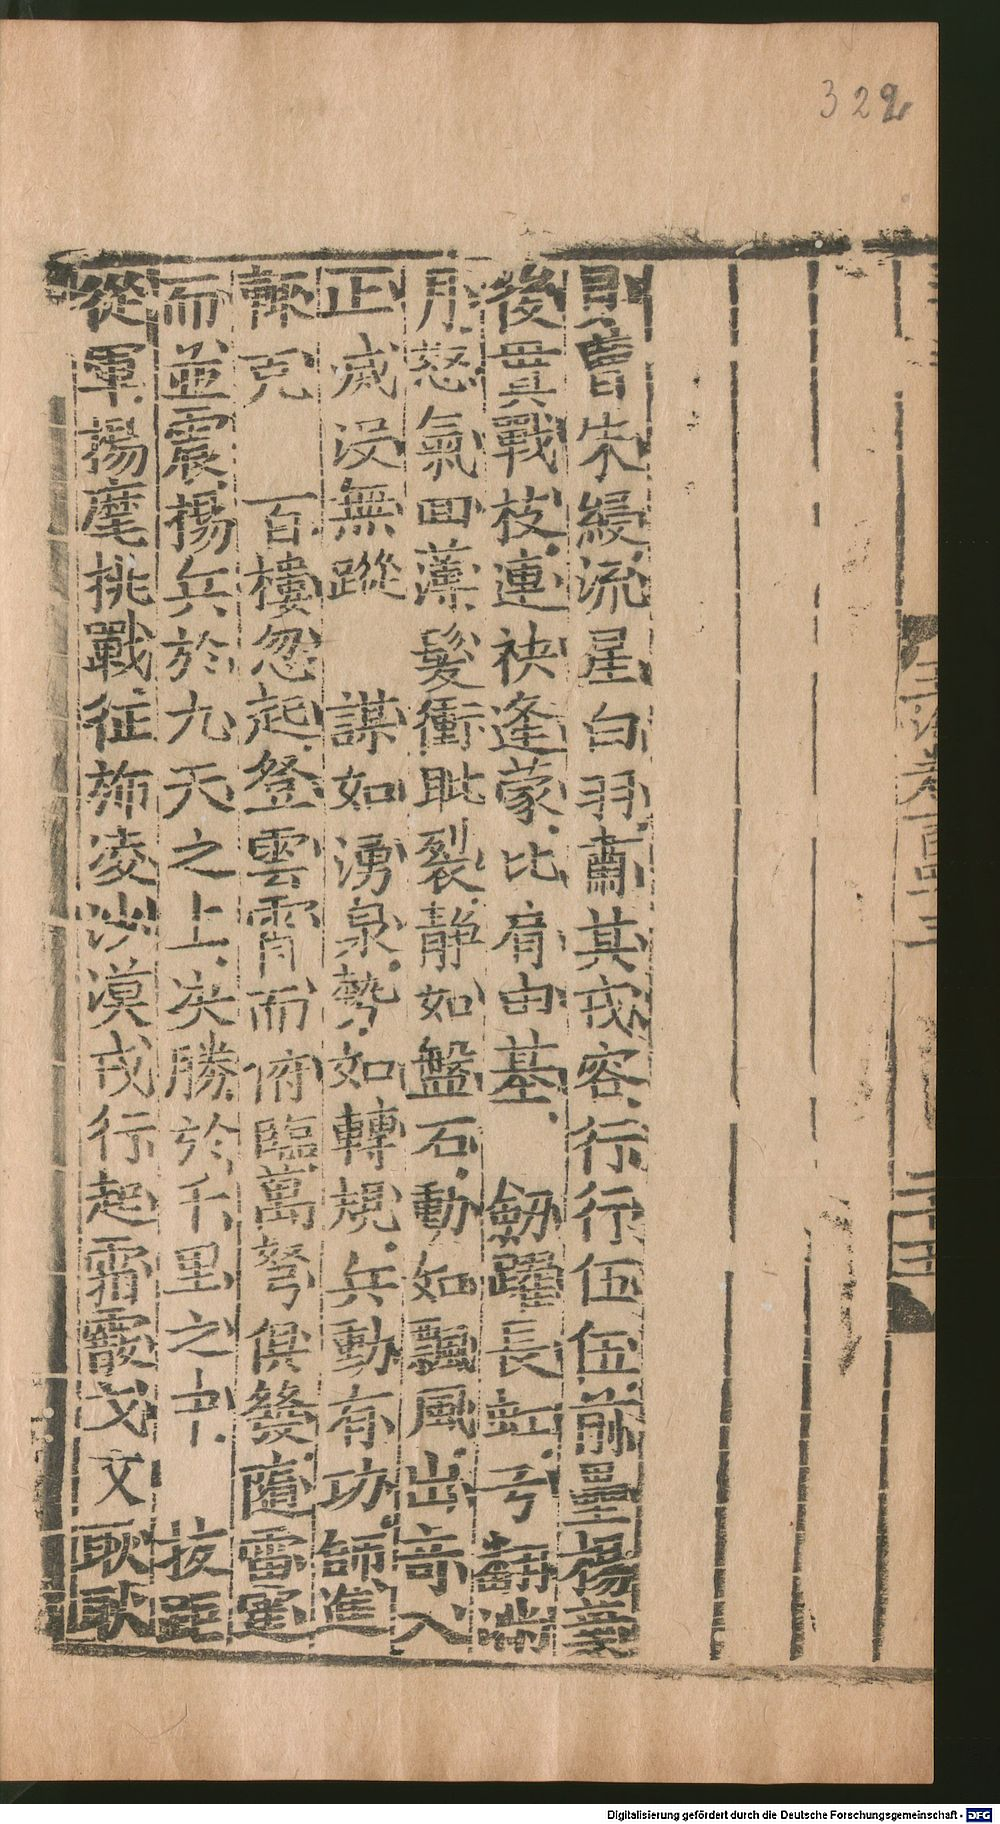 322
貝冑朱綅流星白羽肅其戎容行行伍伍前壘揚
後寘戰枝連袂逢蒙比肩由基 劔躍長虹弓翻滿
月怒氣囬薄髮衝眦裂静如盤石動如飄風出竒入
正滅没無蹤 謀如湧泉勢如轉規兵動有功師進
輙克 百樓忽起登雲霄而俯臨萬弩俱發隨雷電
而並震揚兵於九天之上决勝於千里之中 拔距
從軍揚麾挑戰征斾凌沙漠戎行起霜霰文文耿耿
Digitalisierung gefördert durch die Deutsche Forschungsgemeinschaft - DFG